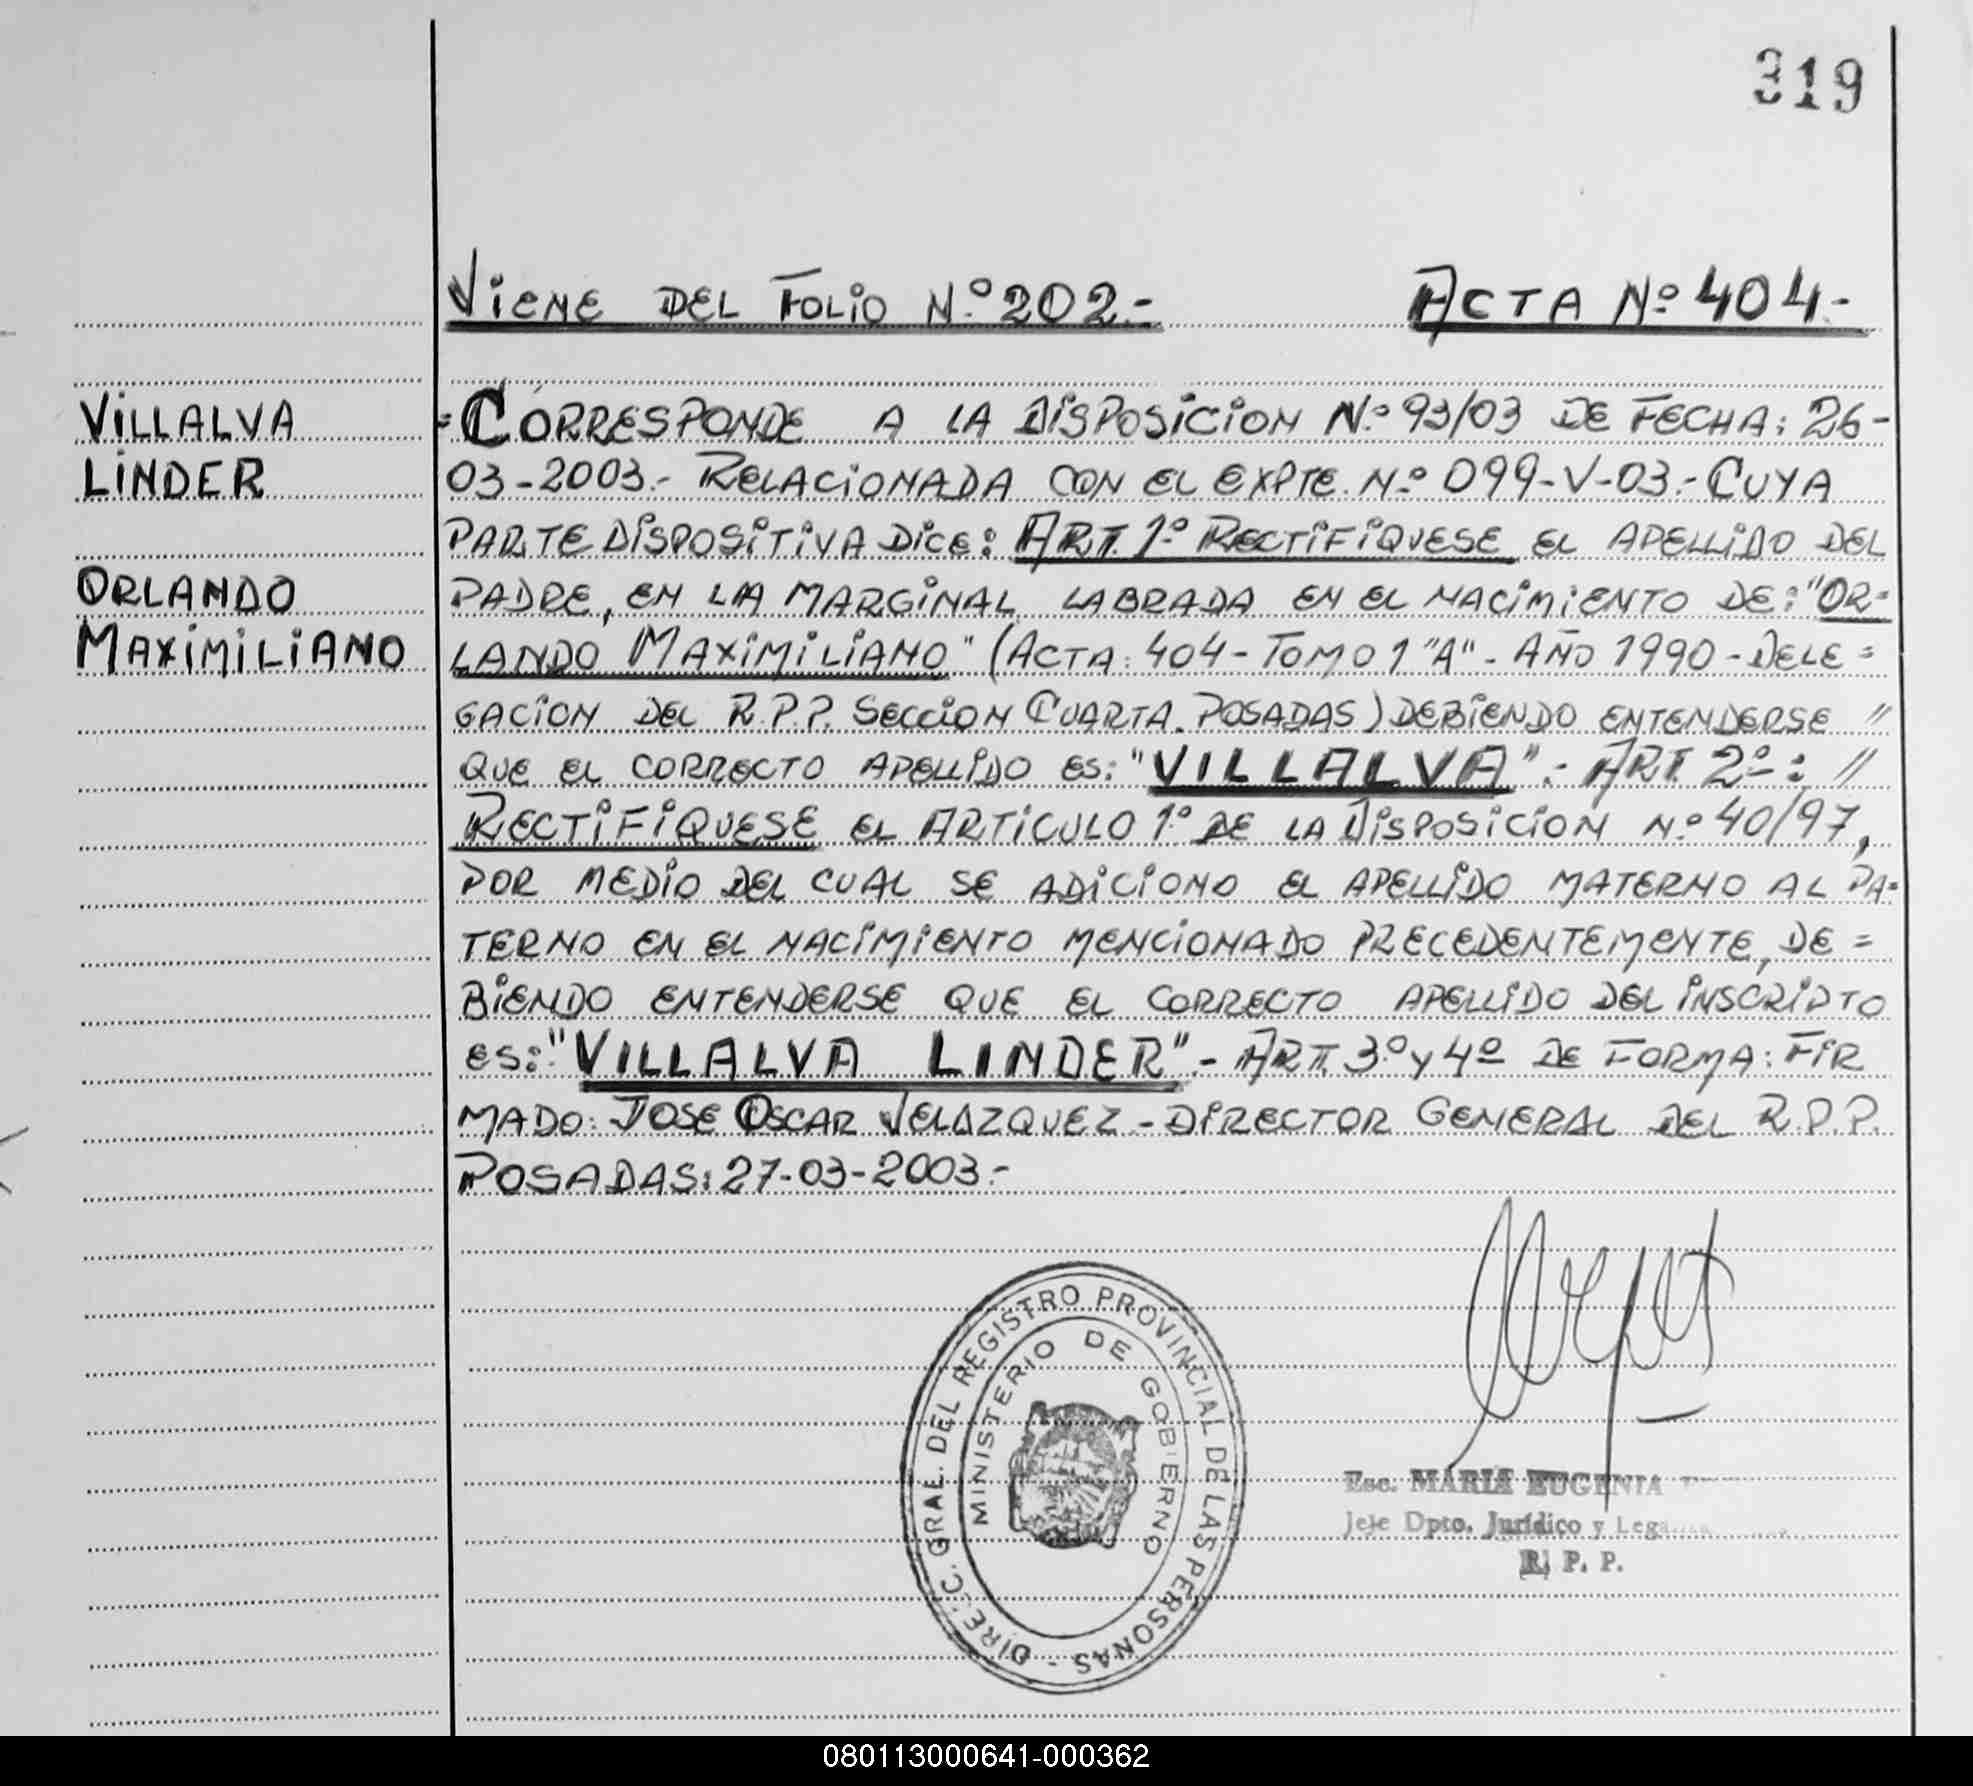 319
VIENE DEL FOLIO N.º 202.- ACTA Nº 404.-
VILLALVA
LINDER
ORLANDO
MAXIMILIANO
=CORRESPONDE A LA DISPOSICION N.º 93/03 DE FECHA: 26-
03-2003.- RELACIONADA CON EL EXPTE. N.º 099-V-03.- CUYA
PARTE DISPOSITIVA DICE: ART. 1º RECTIFIQUESE EL APELLIDO DEL
PADRE, EN LA MARGINAL LABRADA EN EL NACIMIENTO DE: "OR=
LANDO MAXIMILIANO" (ACTA: 404- TOMO 1 "A"- AÑO 1990- DELE=
GACION DEL R.P.P. SECCION CUARTA. POSADAS) DEBIENDO ENTENDERSE //
QUE EL CORRECTO APELLIDO ES: "VILLALVA".- ART. 2º-: //
RECTIFIQUESE EL ARTICULO 1º DE LA DISPOSICION N.º 40/97,
POR MEDIO DEL CUAL SE ADICIONO EL APELLIDO MATERNO AL PA=
TERNO EN EL NACIMIENTO MENCIONADO PRECEDENTEMENTE, DE=
BIENDO ENTENDERSE QUE EL CORRECTO APELLIDO DEL INSCRIPTO
ES: "VILLALVA LINDER".- ART. 3º Y 4º DE FORMA: FIR
MADO: JOSE OSCAR VELAZQUEZ- DIRECTOR GENERAL DEL R.P.P.
POSADAS: 27-03-2003.-
DIRECC. GRAL. DEL REGISTRO PROVINCIAL DE LAS PERSONAS -
MINISTERIO DE GOBIERNO
Esc. MARIA EUGENIA
Jefe Dpto. Jurídico y
R. P. P.
080113000641-000362